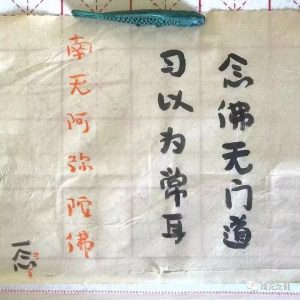 念佛无门道
习以为常耳
南无阿弥陀佛
一念